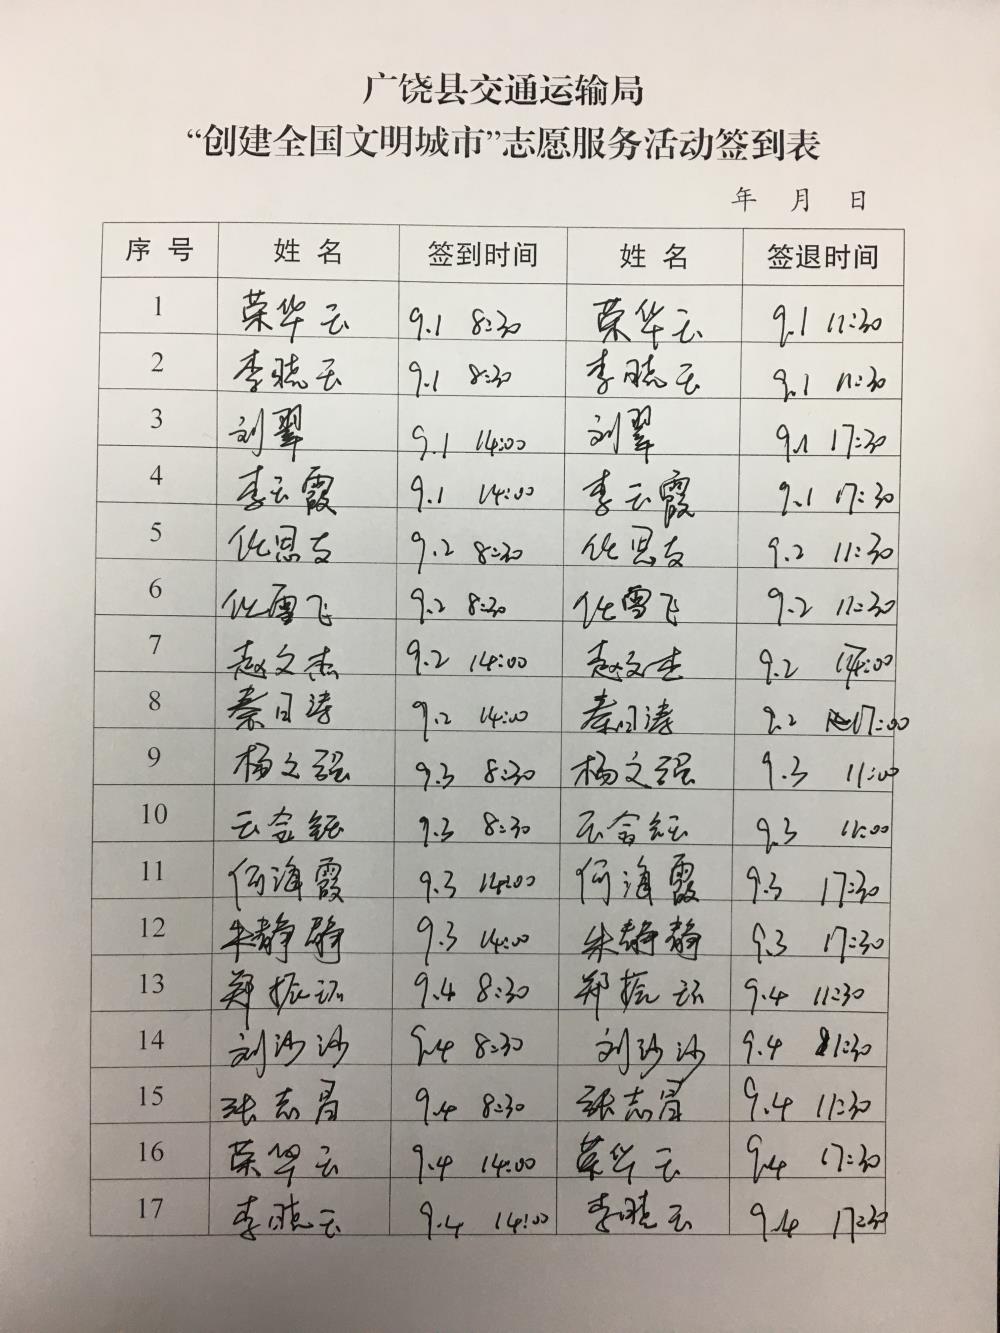 广饶县交通运输局
“创建全国文明城市”志愿服务活动签到表
年 月 日
序号 姓名 签到时间 姓名 签退时间
1 荣华云 9.1 8:30 荣华云 9.1 11:30
2 李晓云 9.1 8:30 李晓云 9.1 11:30
3 刘翠 9.1 14:00 刘翠 9.1 17:30
4 李云霞 9.1 14:00 李云霞 9.1 17:30
5 9.2 8:30 9.2 11:30
6 9.2 8:30 9.2 11:30
7 赵文杰 9.2 14:00 赵文杰 9.2
8 秦日涛 9.2 14:00 秦日涛 9.2 17:00
9 杨文强 9.3 8:30 杨文强 9.3 11:00
10 9.3 8:30 9.3 11:00
11 何海霞 9.3 14:00 何海霞 9.3 17:30
12 朱静静 9.3 14:00 朱静静 9.3 17:30
13 郑振环 9.4 8:30 郑振环 9.4 11:30
14 刘沙沙 9.4 8:30 刘沙沙 9.4 11:30
15 张志昌 9.4 8:30 张志昌 9.4 11:30
16 荣华云 9.4 14:00 荣华云 9.4 17:30
17 李晓云 9.4 14:00 李晓云 9.4 17:30